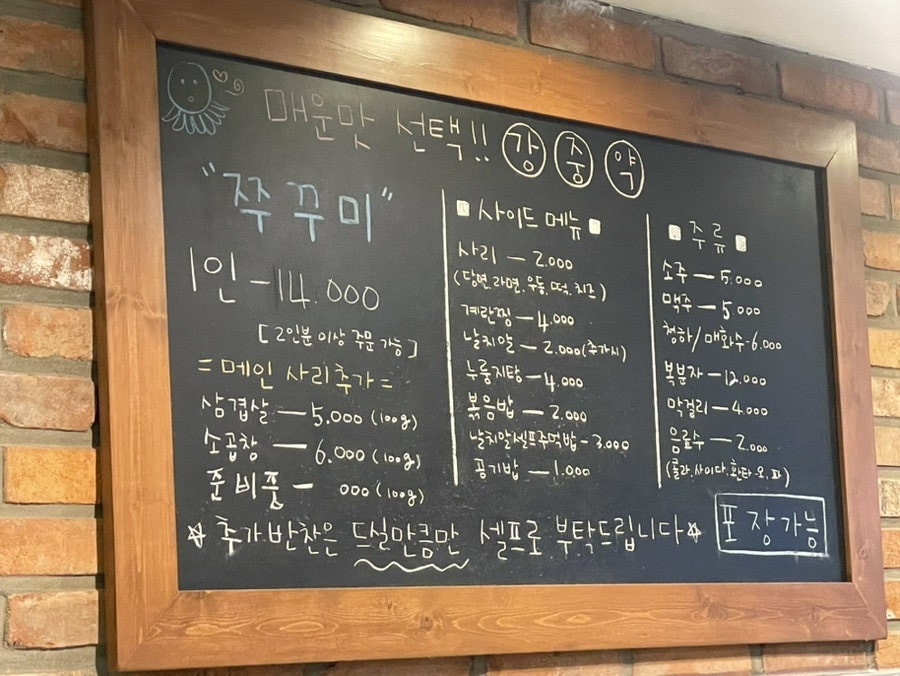 매운맛 선택!! 강 중 약
"쭈꾸미"
1인 - 14.000
[2인분 이상 주문 가능]
= 메인 사리추가 =
삼겹살 — 5.000 (100g)
소곱창 — 6.000 (100g)
준비중 - 000 (100g)
사이드 메뉴
사리 — 2.000
(당면. 라면. 우동. 떡. 치즈)
계란찜 — 4.000
날치알 — 2.000 (추가시)
누룽지탕 — 4.000
볶음밥 — 2.000
날치알셀프주먹밥 - 3.000
공기밥 — 1.000
주류
소주 — 5.000
맥주 — 5.000
청하/매화수 - 6.000
복분자 — 12.000
막걸리 — 4.000
음료수 — 2.000
(콜라. 사이다. 환타-오. 파)
☆ 추가반찬은 드실만큼만 셀프로 부탁드립니다 ☆
포장가능